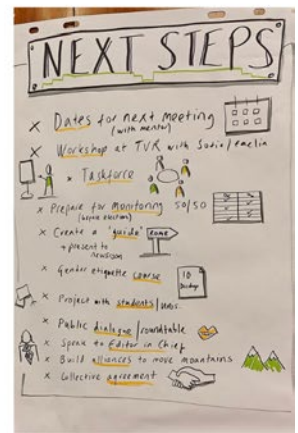 NEXT STEPS
x Dates for next meeting
(with mentor)
x Workshop at TVR with
x Taskforce
x Prepare for monitoring 50/50
x Create a 'guide'
+ present to
newsroom
x Gender etiquette course
10
x Project with students/
x Public dialogue/roundtable
x Speak to Editor in Chief
x Build alliances to move mountains
x Collective agreement